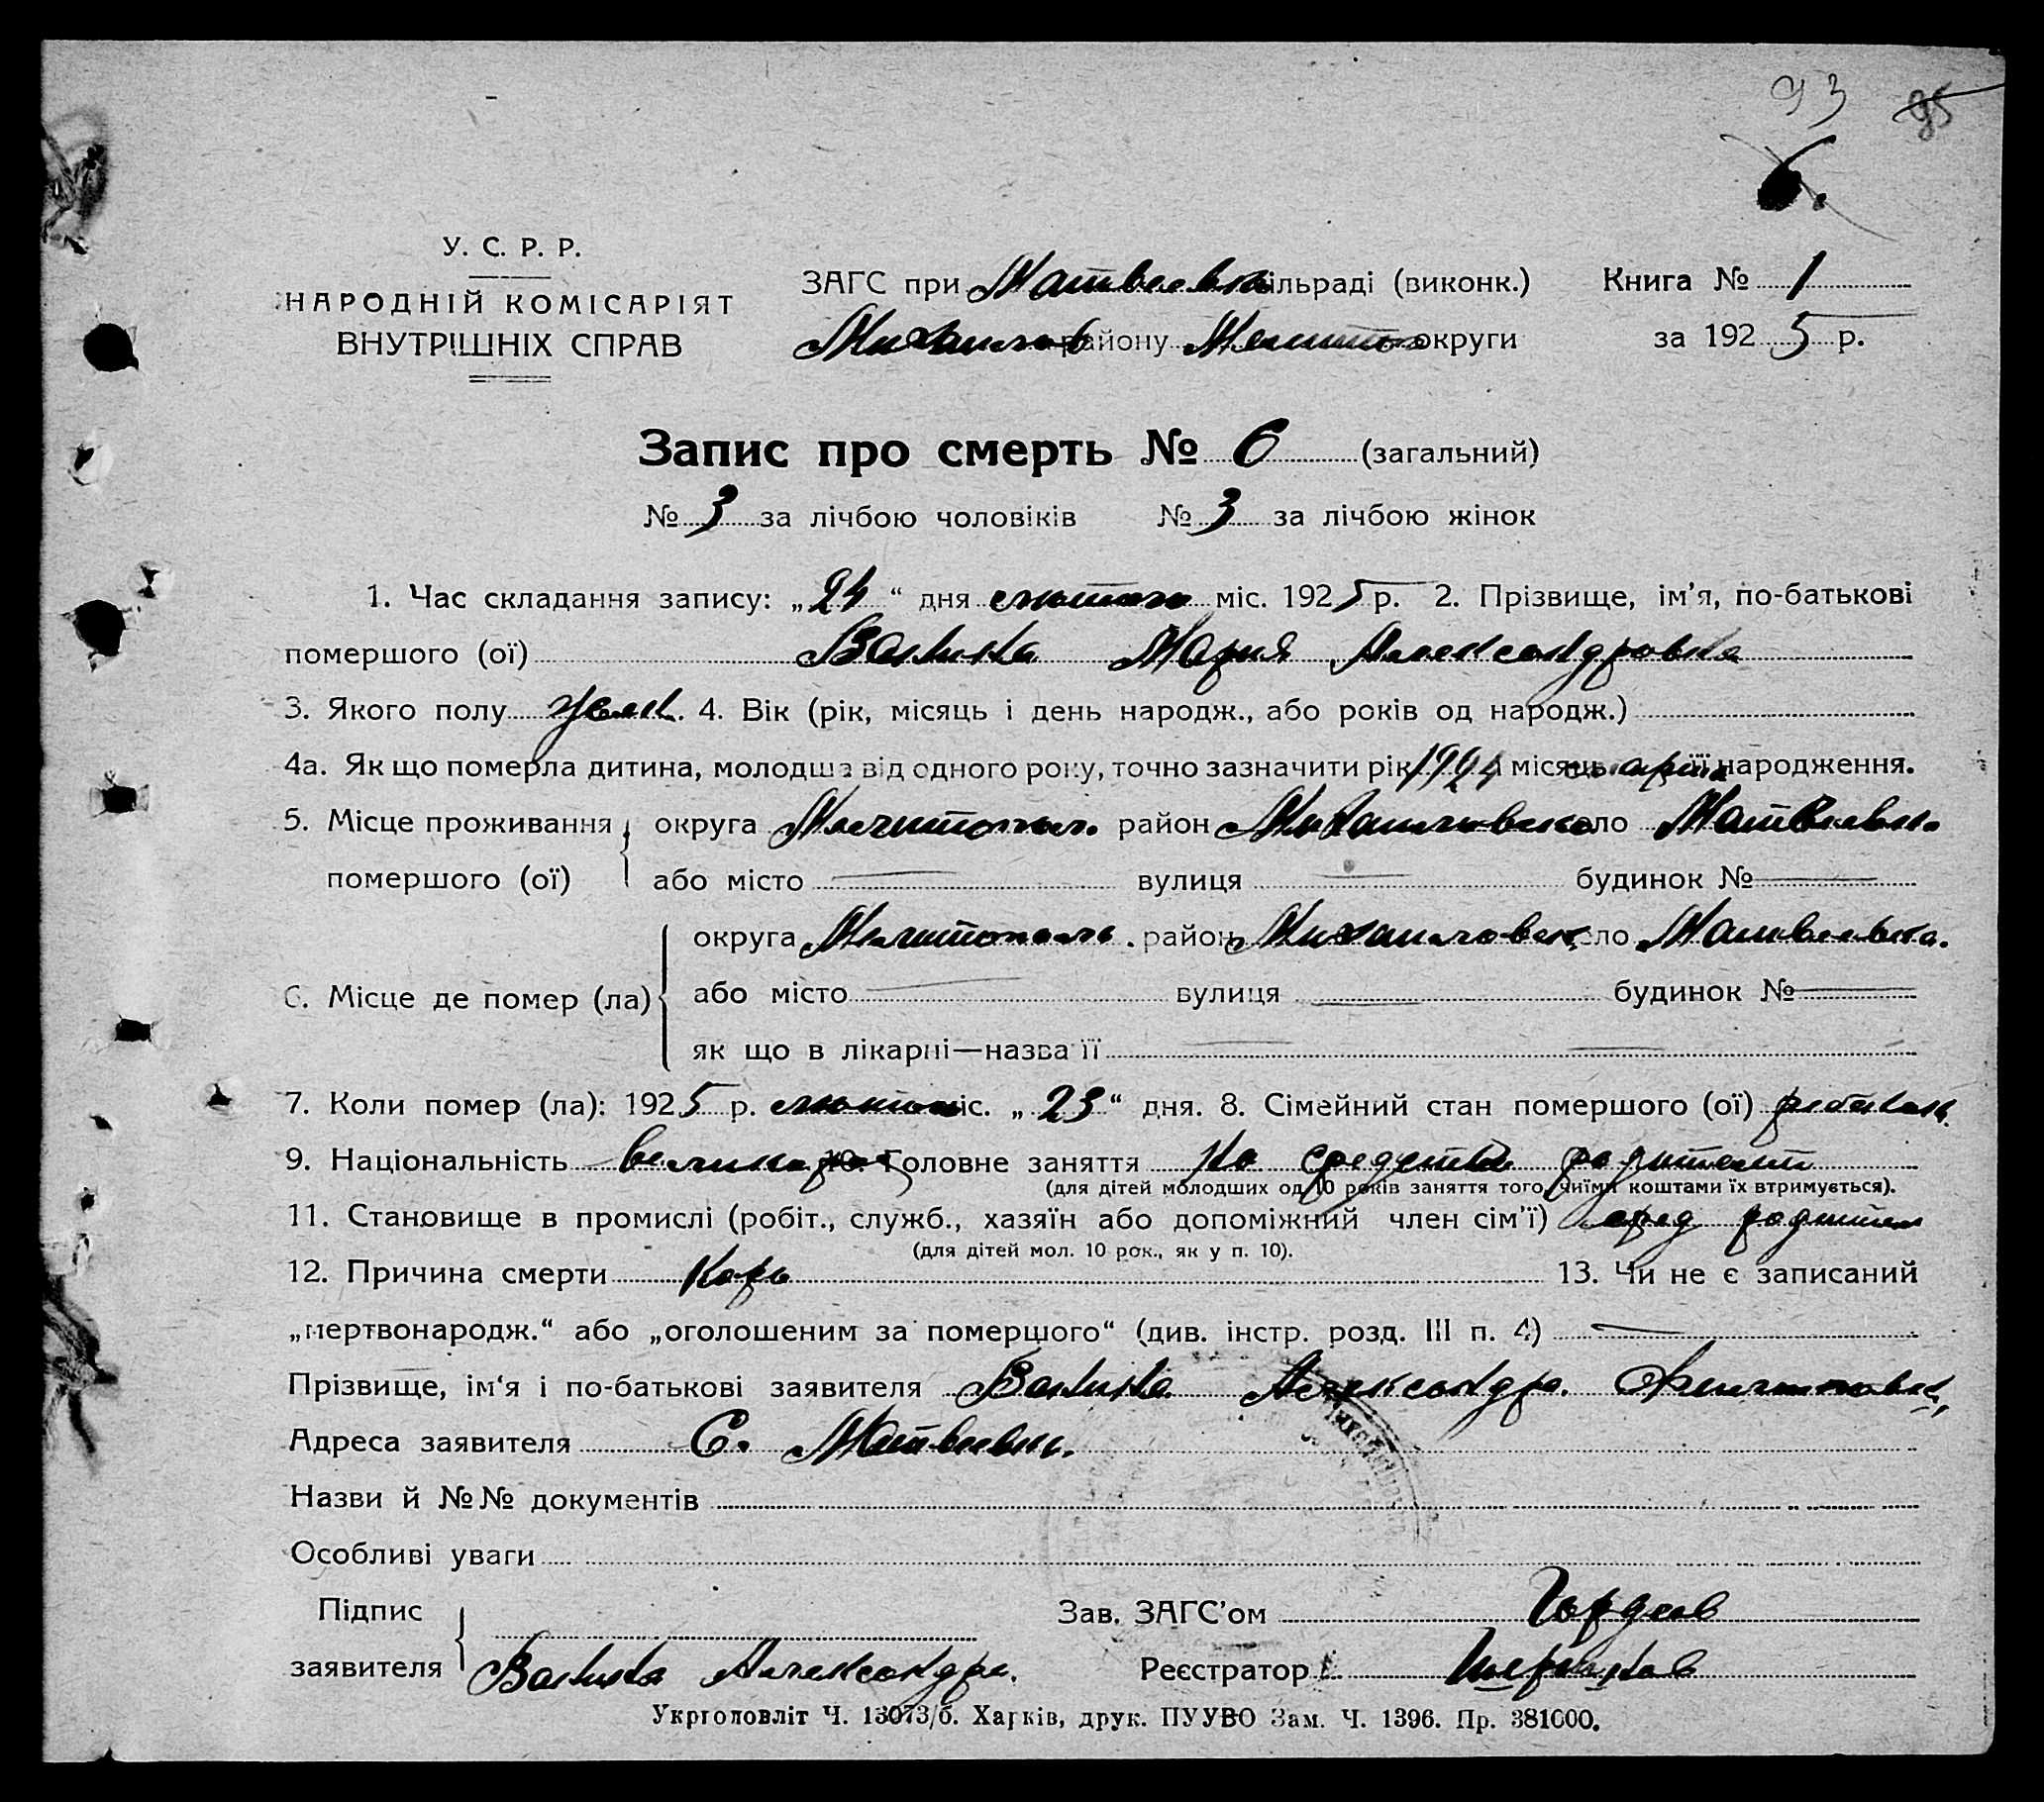 93 95
6.
У. С. Р. Р.
НАРОДНІЙ КОМІСАРІЯТ
ВНУТРІШНІХ СПРАВ
ЗАГС при Матвеевка сільраді (виконк.) Книга № 1
Михайлов району Мелитоп округи за 1925 р.
Запис про смерть № 6 (загальний)
№ 3 за лічбою чоловіків № 3 за лічбою жінок
1. Час складання запису: „24“ дня лютого міс. 1925 р. 2. Прізвище, ім’я, по-батькові
помершого (ої) Мария Александровна
3. Якого полу жен. 4. Вік (рік, місяць і день народж., або років од народж.)
4а. Як що померла дитина, молодша від одного року, точно зазначити рік 1924 і місяць її народження.
5. Місце проживання помершого (ої) округа Мелитопол. район Михайловск село Матвеевк.
або місто — вулиця — будинок № —
6. Місце де помер (ла) округа Мелитополь. район Михайловск село Матвеевка.
або місто — вулиця — будинок № —
як що в лікарні—назва її — —
7. Коли помер (ла): 1925 р. лютого міс. „23“ дня. 8. Сімейний стан помершого (ої)
9. Національність великорос 10. Головне заняття На средства родители
(для дітей молодших од 10 років заняття того, чиїми коштами їх втримується).
11. Становище в промислі (робіт., служб., хазяїн або допоміжний член сім’ї) сред родител
(для дітей мол. 10 рок., як у п. 10).
12. Причина смерти Корь 13. Чи не є записаний
„мертвонародж.“ або „оголошеним за помершого“ (див. інстр. розд. III п. 4) —
Прізвище, ім‘я і по-батькові заявителя Александра
Адреса заявителя С. Матвеевк.
Назви й №№ документів
Особливі уваги
Підпис заявителя Александра.
Зав. ЗАГС’ом Гордеев
Реєстратор
Укрголовліт Ч. 13073/б. Харків, друк. ПУУВО Зам. Ч. 1396. Пр. 381000.